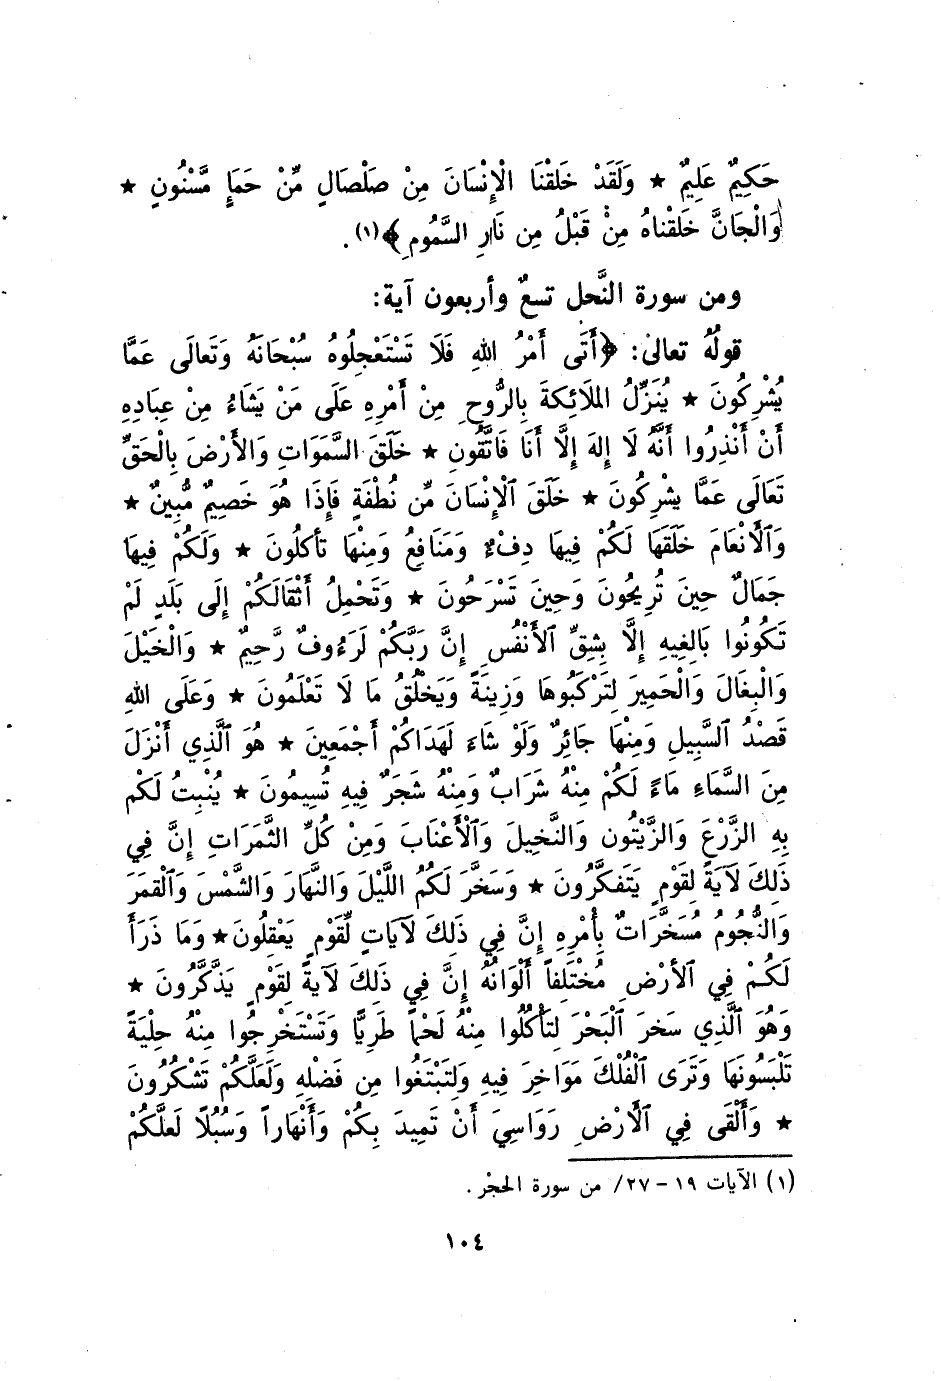 حَكِيمٌ عَلِيمٌ ★ وَلَقَدْ خَلَقْنَا الْإِنْسَانَ مِنْ صَلْصَالٍ مِّنْ حَمَإٍ مَّسْنُونٍ ★
وَالْجَانَّ خَلَقْناهُ مِنْ قَبْلُ مِن نَارِ السَّمُومِ﴾(١).
ومن سورة النَّحل تسعٌ وأربعون آية:
قولُهُ تعالىٰ: ﴿أَتَى أَمْرُ اللهِ فَلَا تَسْتَعْجِلُوهُ سُبْحَانَهُ وَتَعَالَى عَمَّا
يُشْرِكُونَ ★ يُنَزِّلُ الملَائِكَةَ بِالرُّوحِ مِنْ أَمْرِهِ عَلَى مَنْ يَشَاءُ مِنْ عِبَادِهِ
أَنْ أَنْذِرُوا أَنَّهُ لَا إِلهَ إِلَّا أَنَا فَاتَّقُونِ ★ خَلَقَ السَّمَوَاتِ وَالأَرْضَ بِالْحَقِّ
تَعَالَى عَمَّا يشْرِكُونَ ★ خَلَقَ ٱلْإِنْسَانَ مِّن نُطْفَةٍ فَإِذَا هُوَ خَصِيمٌ مُّبِينٌ ★
وَٱلْأَنْعَامَ خَلَقَهَا لَكُمْ فِيهَا دِفْءٌ وَمَنَافِعُ وَمِنْهَا تأكُلُونَ ★ وَلَكُمْ فِيهَا
جَمَالٌ حِينَ تُرِيحُونَ وَحِينَ تَسْرَحُونَ ★ وَتَحْمِلُ أَثْقَالَكُمْ إِلَى بَلَدٍ لَمْ
تَكُونُوا بَالِغِيهِ إِلَّا بِشِقِّ ٱلأَنْفُسِ إِنَّ رَبَّكُمْ لَرَءُوفٌ رَّحِيمٌ ★ وَالْخَيْلَ
وَالْبِغَالَ وَالْحَمِيرَ لِتَرْكَبُوهَا وَزِينَةً وَيَخْلُقُ مَا لَا تَعْلَمُونَ ★ وَعَلَى اللهِ
قَصْدُ ٱلسَّبِيلِ وَمِنْهَا جَائِرٌ وَلَوْ شَاءَ لَهَدَاكُمْ أَجْمَعِينَ ★ هُوَ ٱلَّذِي أَنْزَلَ
مِنَ السَّمَاءِ مَاءً لَكُمْ مِنْهُ شَرَابٌ وَمِنْهُ شَجَرٌ فِيهِ تُسِيمُونَ ★ يُنْبِتُ لَكُم
بِهِ الزَّرْعَ وَالزَّيْتُونَ وَالنَّخِيلَ وَٱلْأَعْنَابَ وَمِنْ كُلِّ الثَّمَرَاتِ إِنَّ فِي
ذَلِكَ لَآيَةً لِقَوْمٍ يَتَفكَّرُونَ ★ وَسَخَّرَ لَكُمُ اللَّيْلَ وَالنَّهَارَ وَالشَّمْسَ وَٱلْقمَرَ
وَالنُّجُومُ مُسَخَّرَاتٌ بِأَمْرِهِ إِنَّ فِي ذَلِكَ لَآيَاتٍ لِّقَوْمٍ يَعْقِلُونَ★ وَمَا ذَرَأَ
لَكُمْ فِي ٱلأَرْضِ مُخْتَلِفاً أَلْوَانُهُ إِنَّ فِي ذَلِكَ لَآيةً لِقَوْمٍ يَذَّكَّرُونَ ★
وَهُوَ ٱلَّذِي سَخرَ ٱلْبَحْرَ لِتَأْكُلُوا مِنْهُ لَحْماً طَرِيًّا وَتَسْتَخْرِجُوا مِنْهُ حِلْيَةً
تَلْبَسُونَهَا وَتَرَى ٱلْفُلْكَ مَوَاخِرَ فِيهِ وَلِتَبْتَغُوا مِن فَضْلِهِ وَلَعَلَّكُمْ تَشْكُرُونَ
★ وَأَلْقَى فِي ٱلْأَرْضِ رَوَاسِيَ أَنْ تَمِيدَ بِكُمْ وَأَنْهَاراً وَسُبُلًا لَعلَّكُمْ
(١) الآيات ١٩ - ٢٧/ من سورة الحجْر.
١٠٤